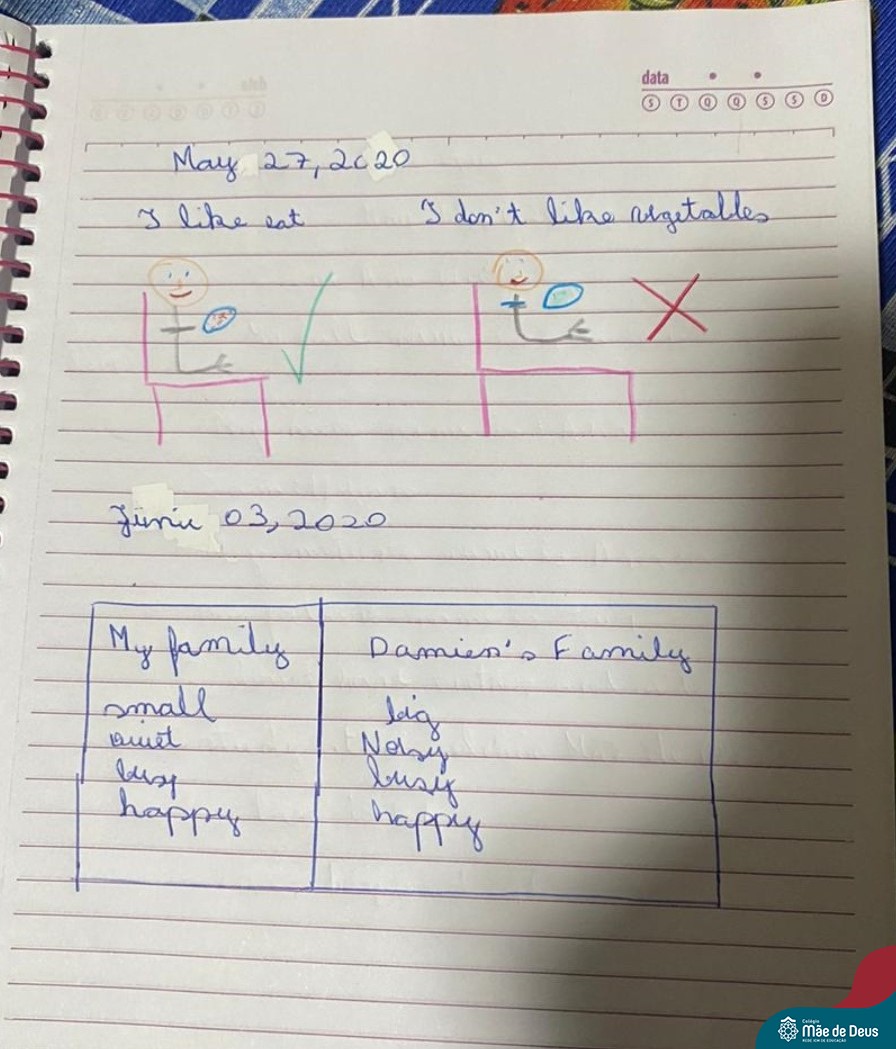 data
S T Q Q S S D
May 27, 2020
I like eat I don't like vegetables
03, 2020
My family Damien's Family
small big
quiet Noisy
busy busy
happy happy
Colégio
Mãe de Deus
REDE ICM DE EDUCAÇÃO